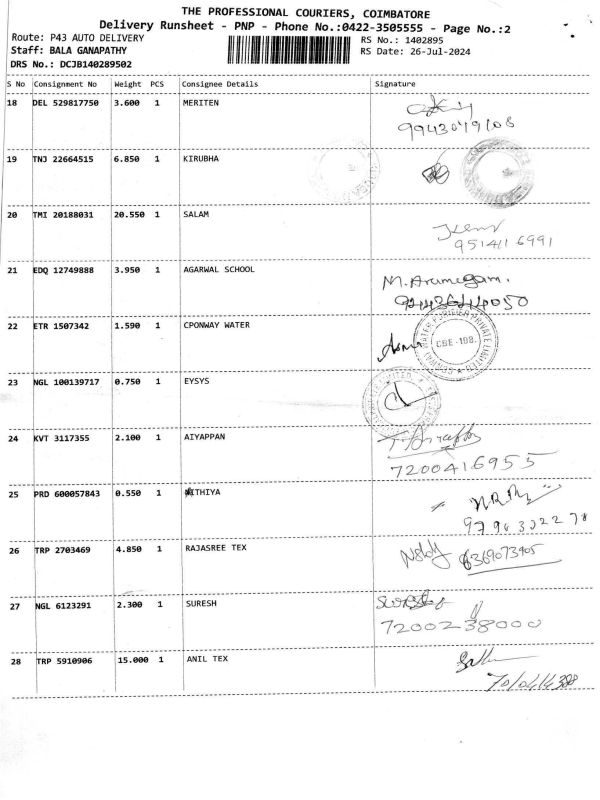 THE PROFESSIONAL COURIERS, COIMBATORE
Delivery Runsheet - PNP - Phone No.:0422-3505555 - Page No.:2
Route: P43 AUTO DELIVERY RS No.: 1402895
Staff: BALA GANAPATHY RS Date: 26-Jul-2024
DRS No.: DCJB140289502
S No Consignment No Weight PCS Consignee Details Signature
18 DEL 529817750 3.600 1 MERITEN
9943079108
19 TNJ 22664515 6.850 1 KIRUBHA
20 TMI 20188031 20.550 1 SALAM
9514116991
21 EDQ 12749888 3.950 1 AGARWAL SCHOOL
M. Arumugam.
22 ETR 1507342 1.590 1 CPONWAY WATER
WATER PURIFIER PRIVATE LIMITED
CBE-108.
23 NGL 100139717 0.750 1 EYSYS
24 KVT 3117355 2.100 1 AIYAPPAN
7200416955
25 PRD 600057843 0.550 1 ITHIYA
26 TRP 2703469 4.850 1 RAJASREE TEX
6369073905
27 NGL 6123291 2.300 1 SURESH
7200238000
28 TRP 5910906 15.000 1 ANIL TEX